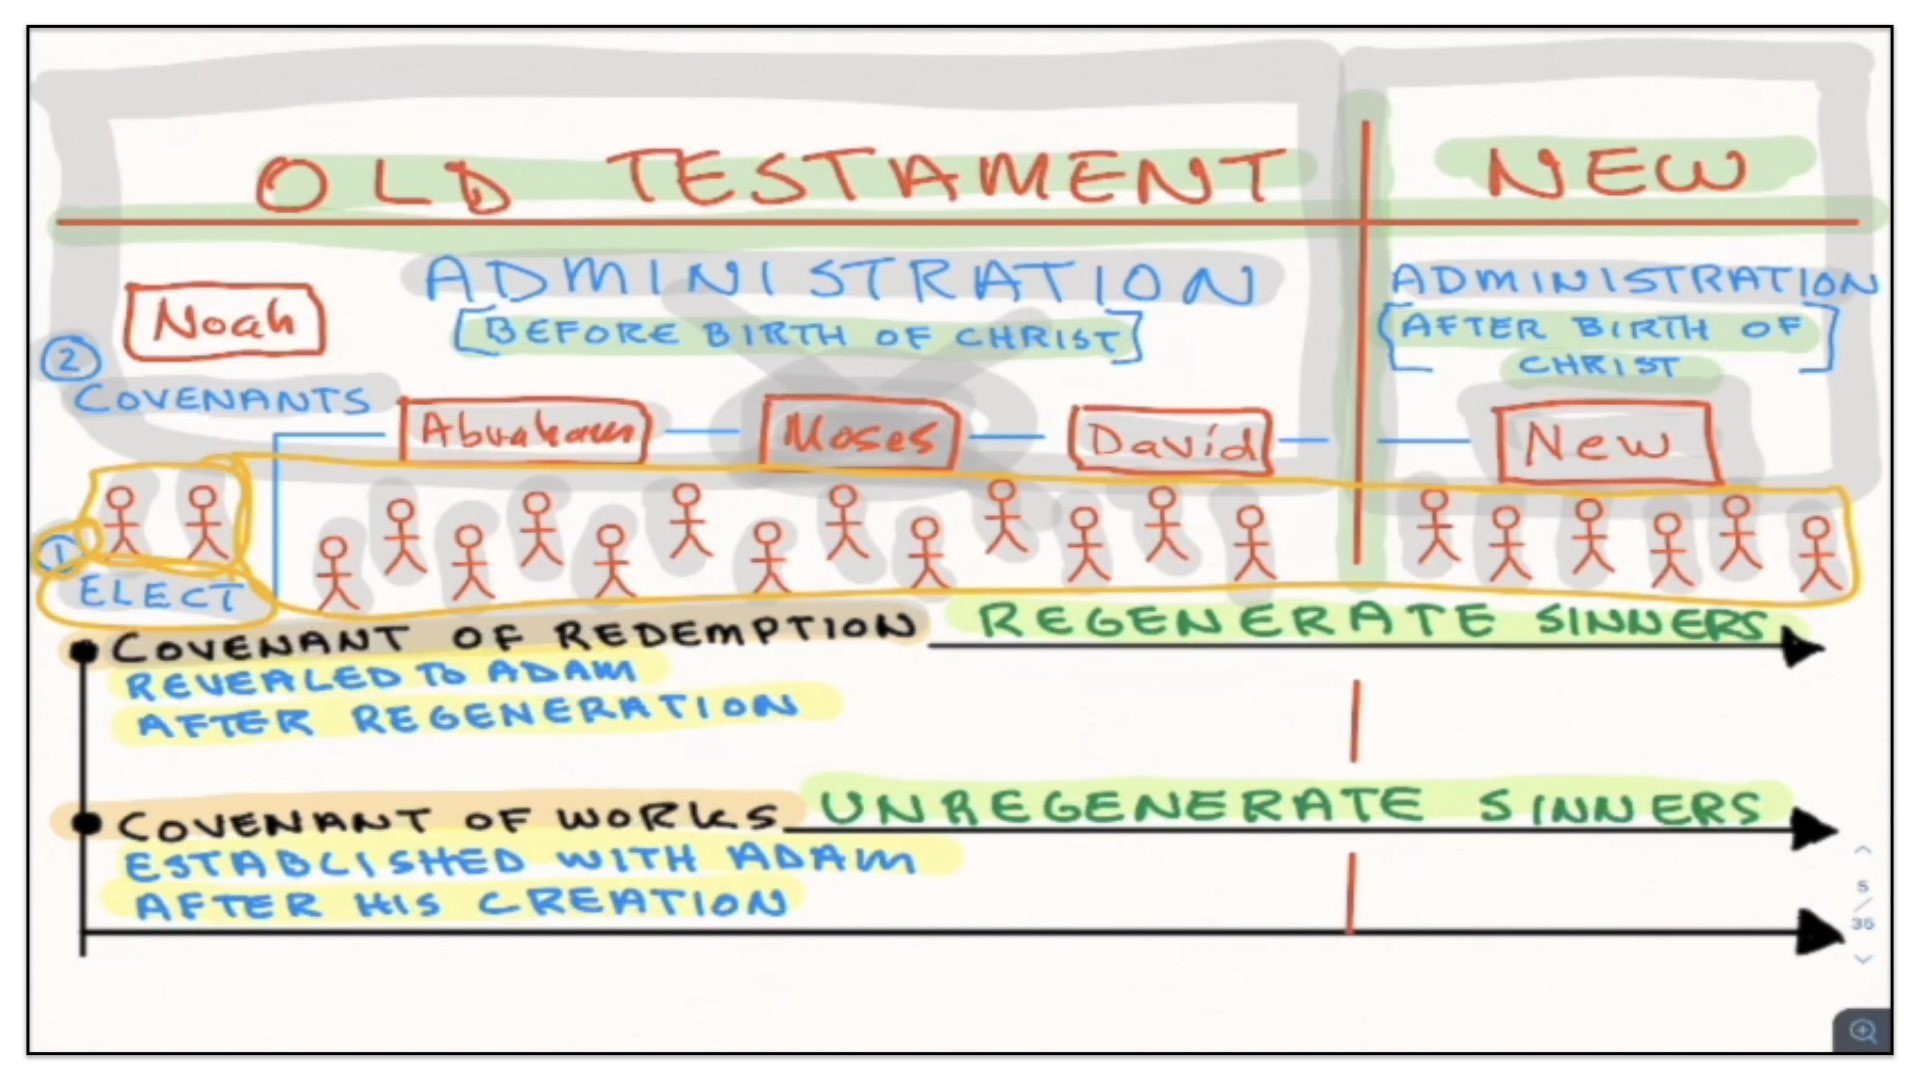 OLD TESTAMENT
NEW
ADMINISTRATION
[BEFORE BIRTH OF CHRIST]
ADMINISTRATION
[AFTER BIRTH OF
CHRIST]
Noah
2
COVENANTS
Abraham
Moses
David
New
1
ELECT
COVENANT OF REDEMPTION
REGENERATE SINNERS
REVEALED TO ADAM
AFTER REGENERATION
COVENANT OF WORKS
UNREGENERATE SINNERS
ESTABLISHED WITH ADAM
AFTER HIS CREATION
5
/
35